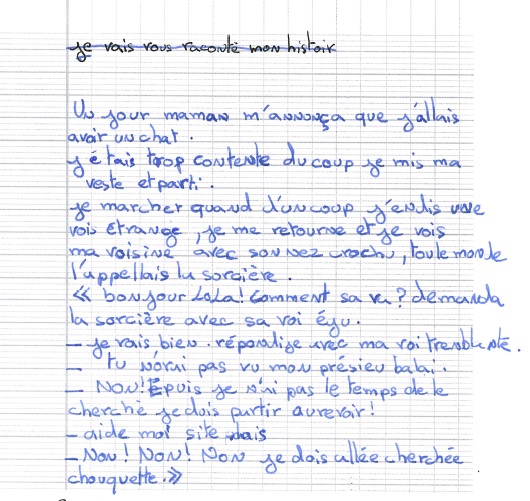 je vais vous raconté mon histoir
Un jour maman m'annonça que j'allais
avoir un chat.
j'étais trop contente du coup je mis ma
veste et parti.
je marcher quand d'un coup j'endis une
vois étrange, je me retourne et je vois
ma voisine avec son nez crochu, toule monde
l'appellais la sorcière.
« bonjour LoLa! Comment sa va? demanda
la sorcière avec sa voi éyu.
– je vais bien. répondije avec ma voi tremblante.
– tu n'orai pas vu mon présieu balai.
– Non! Epuis je n'ai pas le temps de le
cherché je dois partir aurevoir!
– aide moi site dais
– Non! Non! Non je dois allée cherchée
chouquette.»